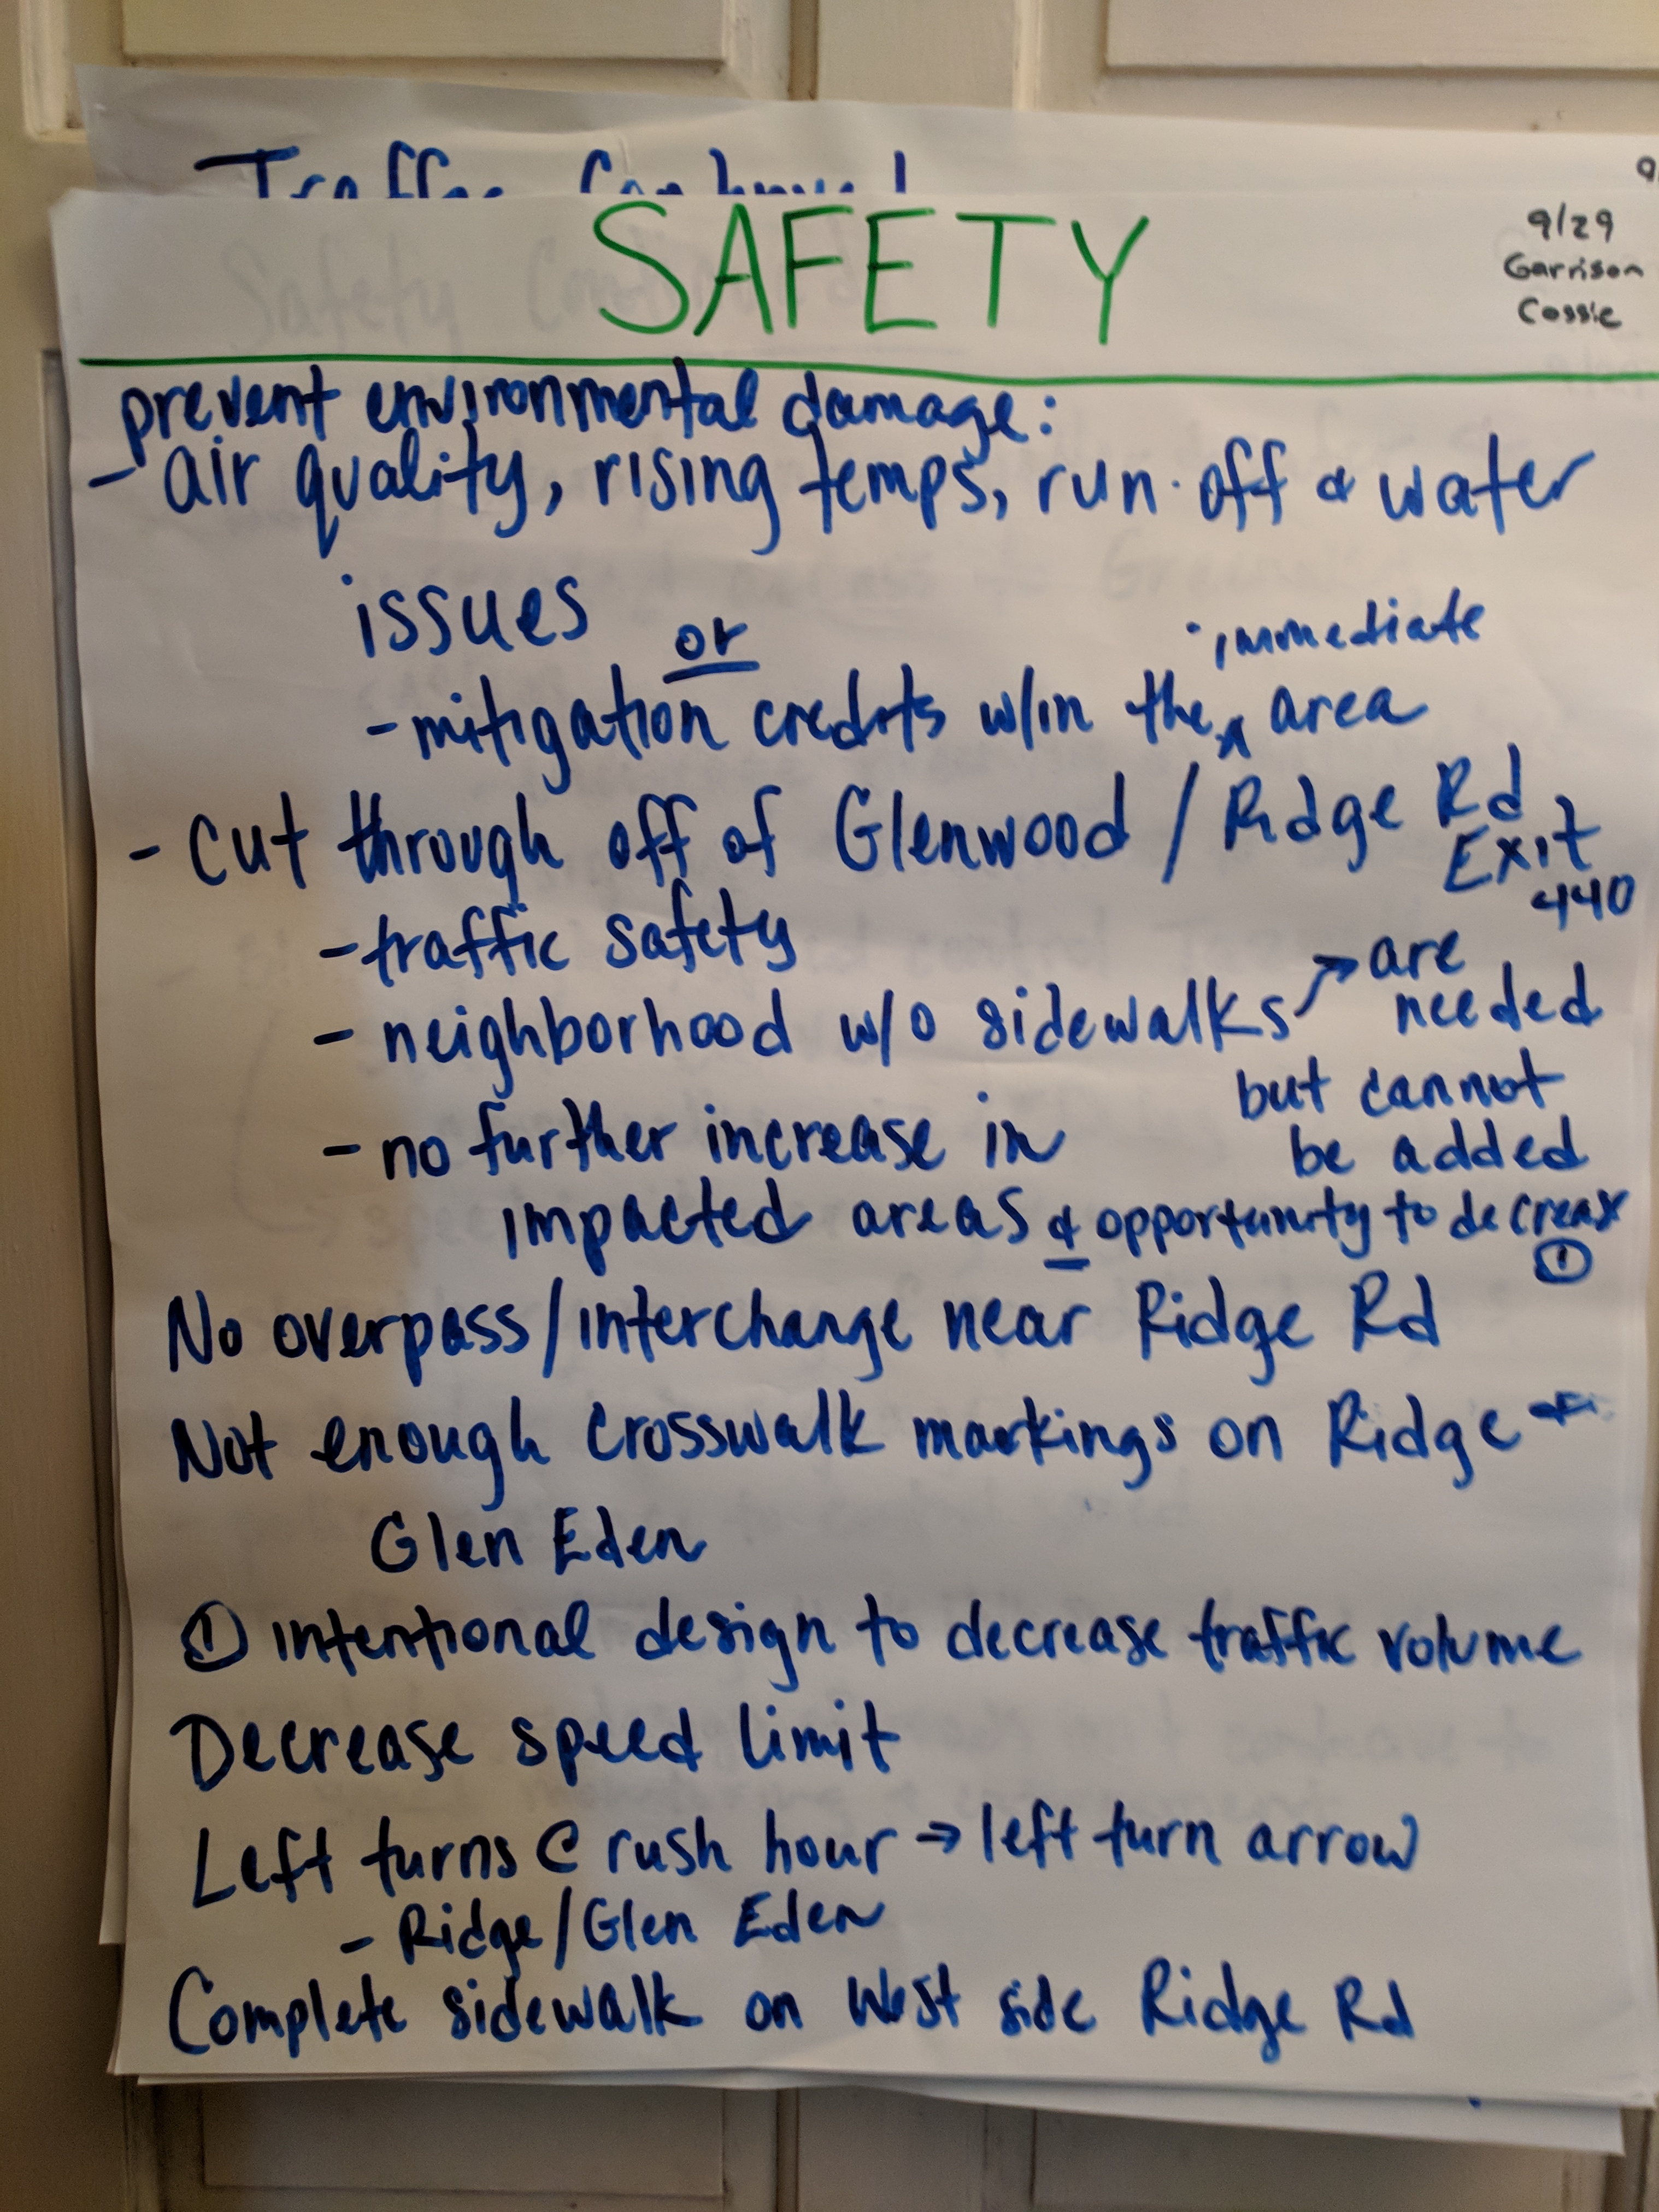 Traffic Continued
SAFETY
9/29
Garrison
Cossie
prevent environmental damage:
- air quality, rising temps, run-off & water
issues or
- mitigation credits w/in the ^ immediate area
- cut through off of Glenwood / Ridge Rd
Exit
440
- traffic safety
- neighborhood w/o sidewalks → are
needed
but cannot
be added
- no further increase in
impacted areas & opportunity to decrease
①
No overpass/interchange near Ridge Rd
Not enough crosswalk markings on Ridge +
Glen Eden
① intentional design to decrease traffic volume
Decrease speed limit
Left turns @ rush hour → left turn arrow
- Ridge/Glen Eden
Complete sidewalk on West side Ridge Rd